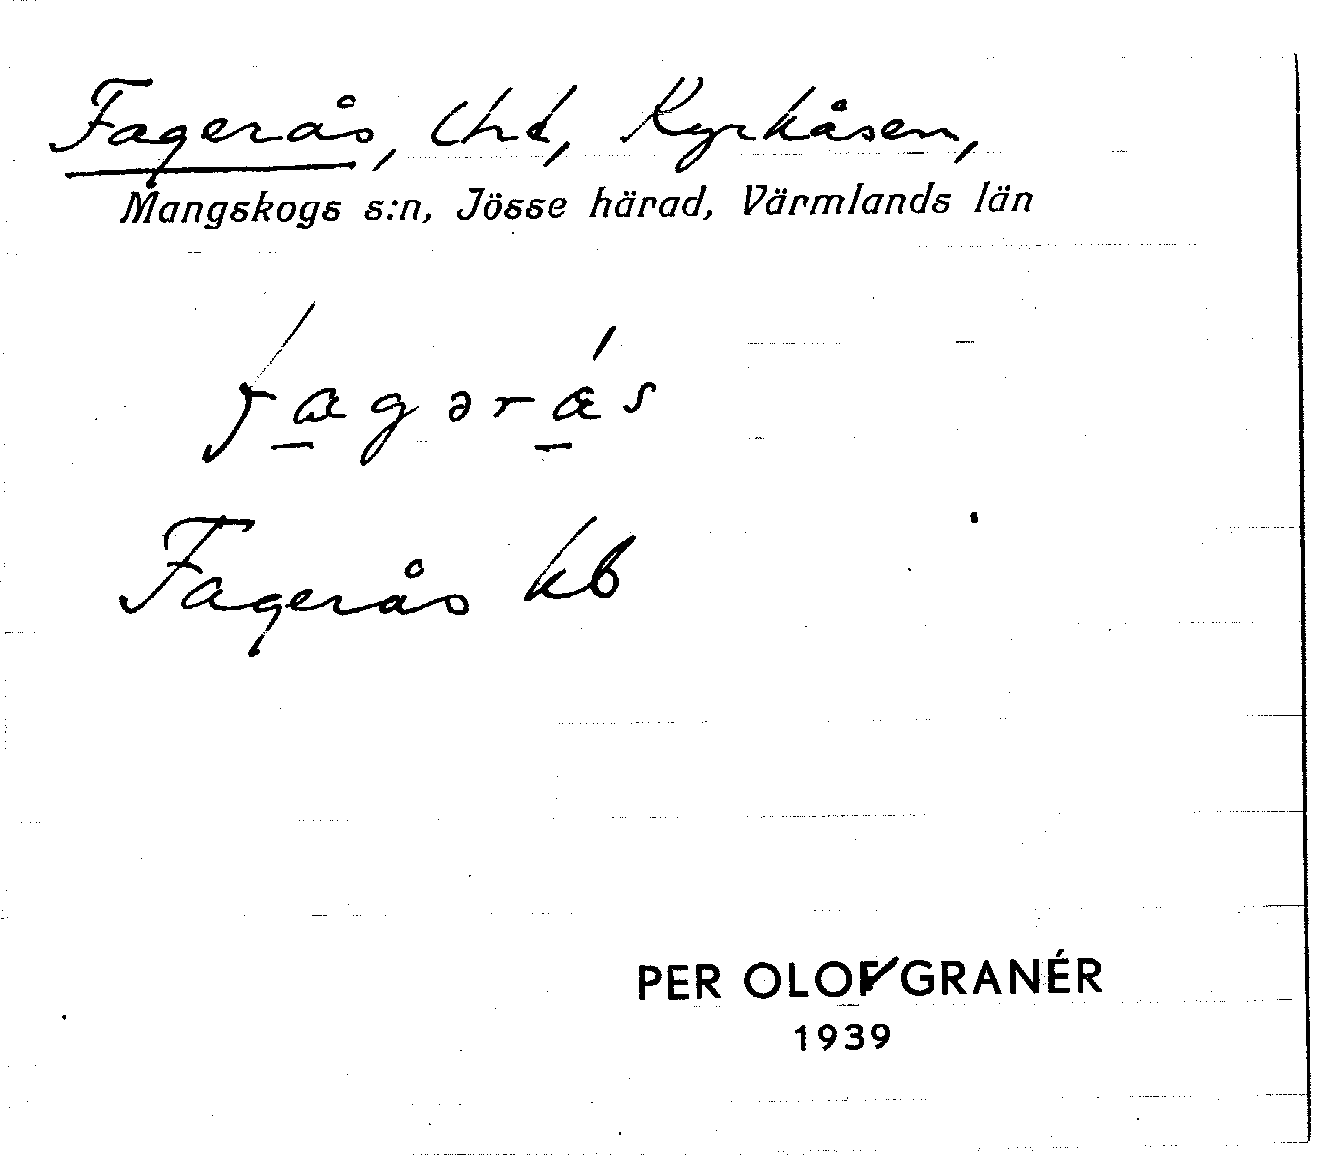 Fagerås, Urd, Kyrkåsen,
Mangskogs s:n, Jösse härad, Värmlands län
Fagerås kb
PER OLOF GRANÉR
1939